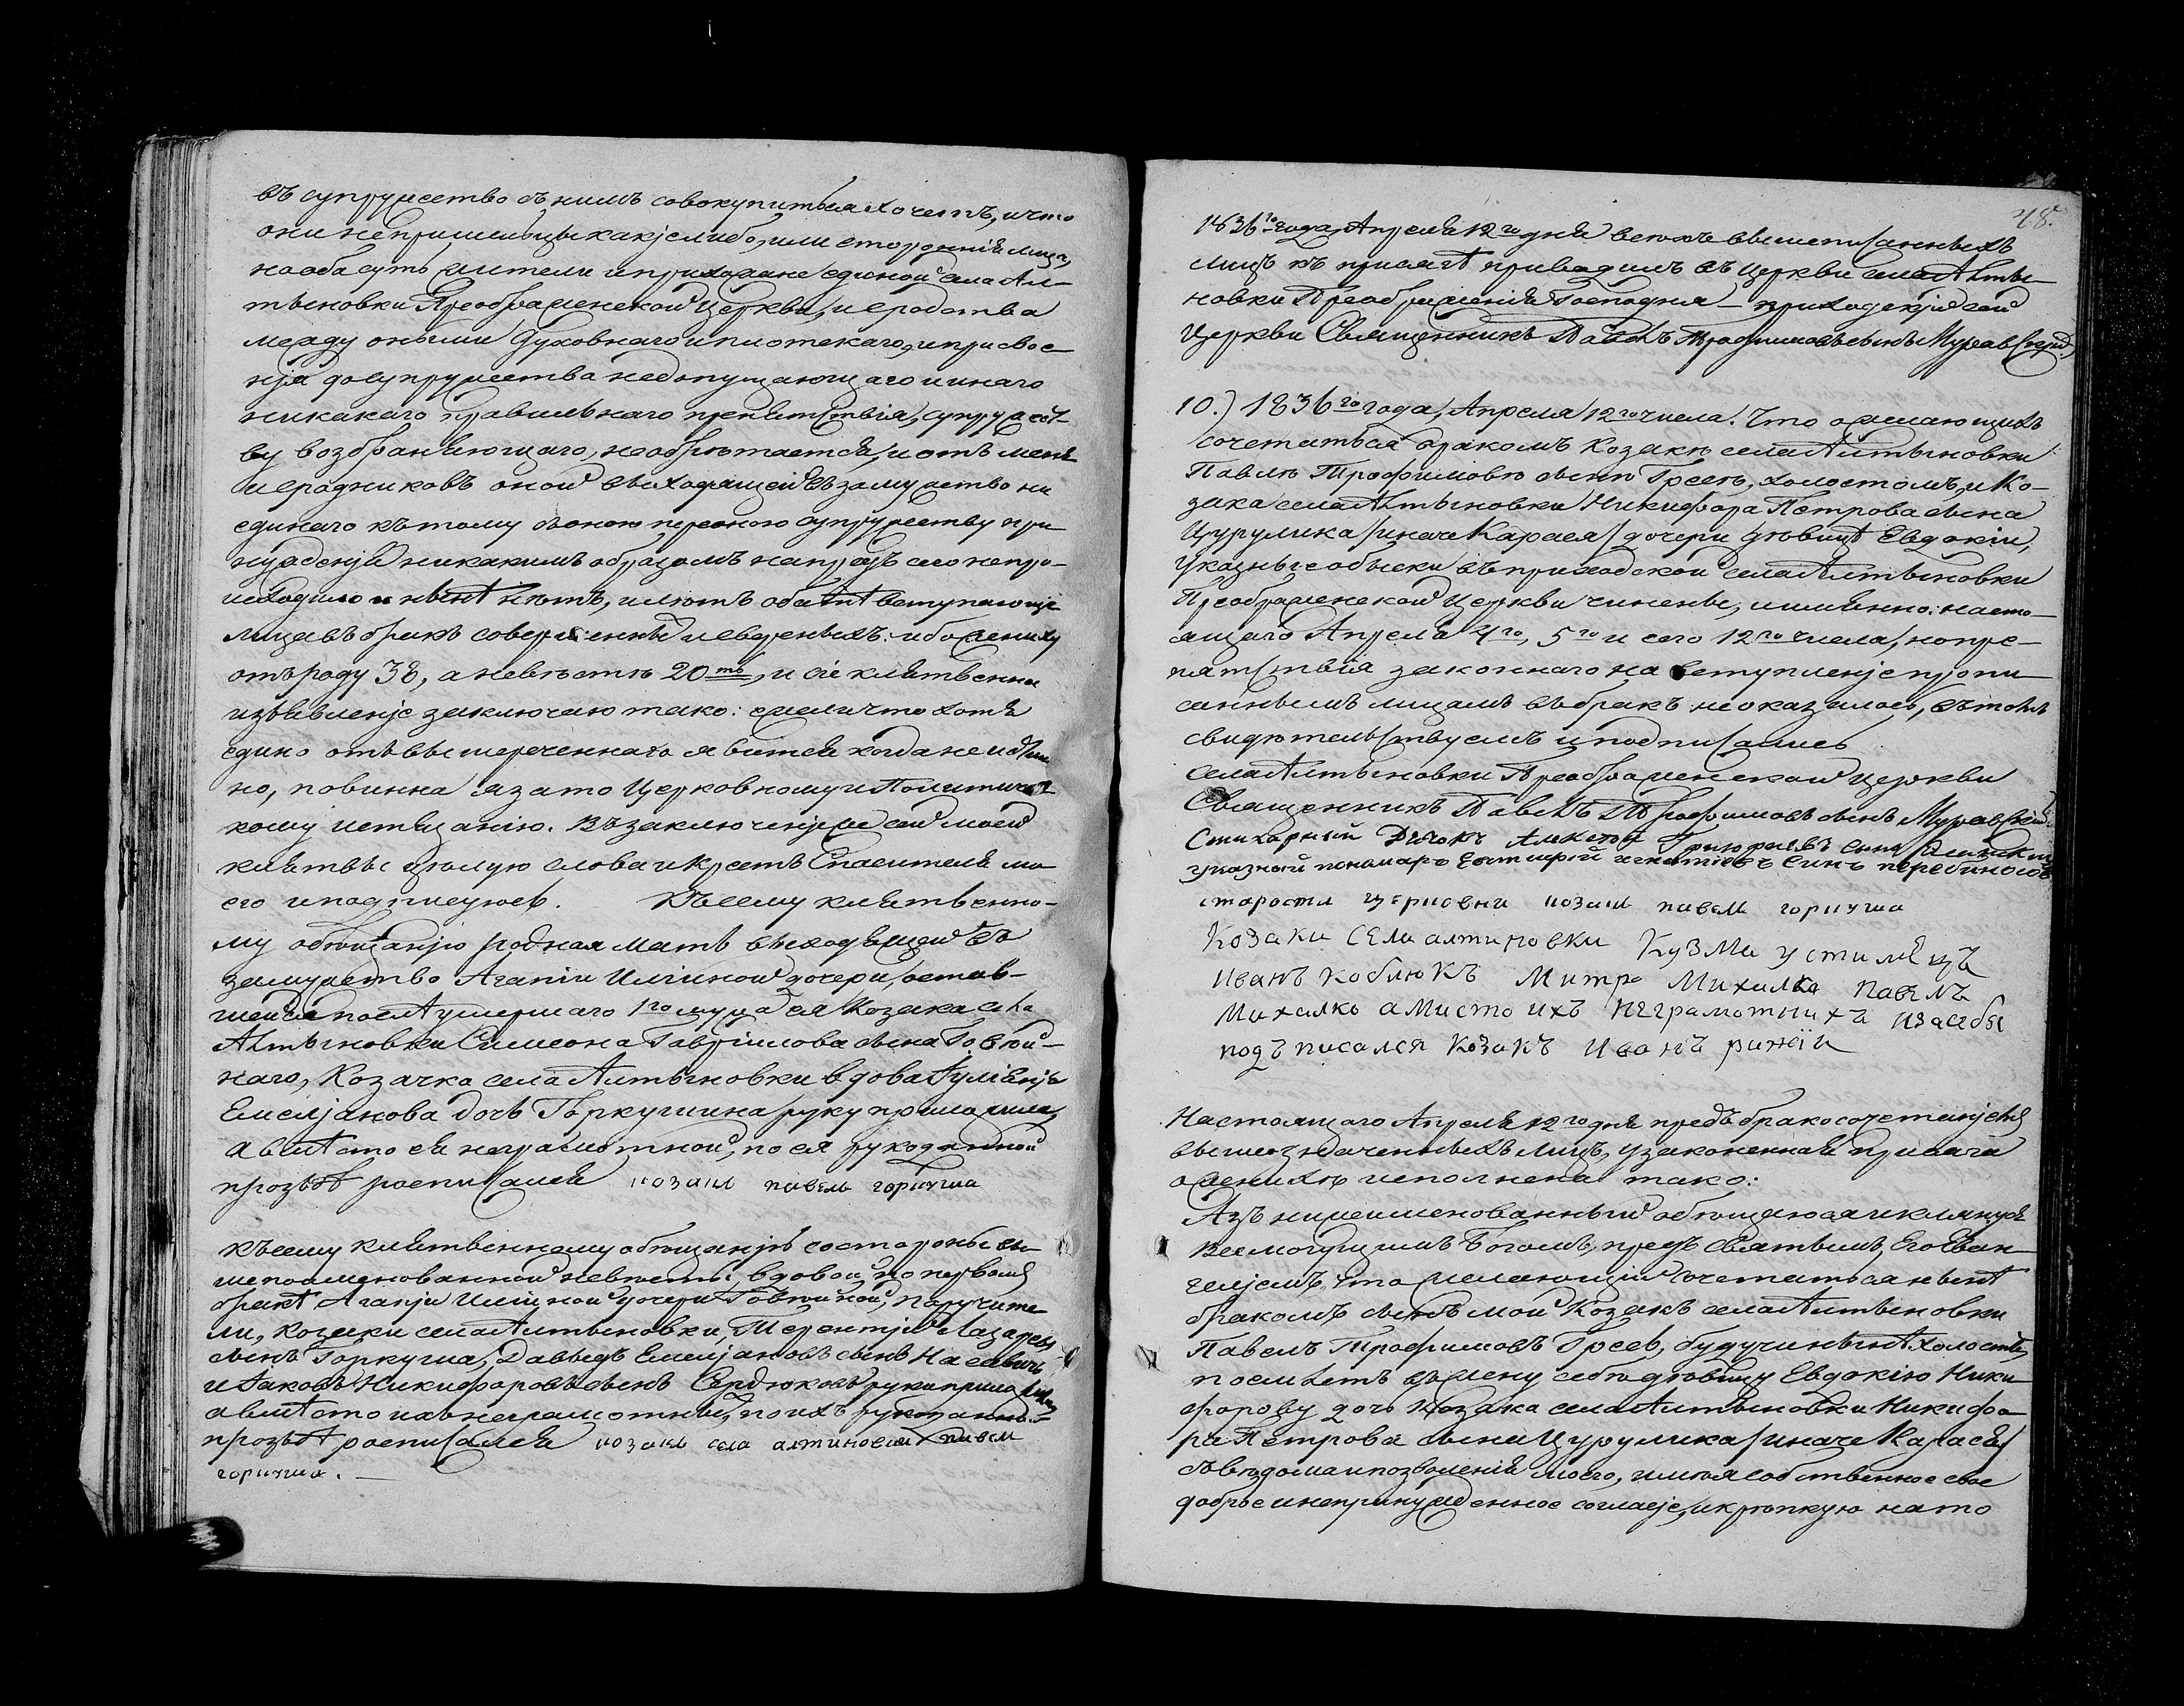 въ супружество съ нимъ совокупитъся хочетъ, и что
они непришельцы какіе либо, или стороннія лица,
но оба суть жители и прихожане единой села Ал-
тыновки Преображенской Церкви, и сродства
между оными духовнаго и плотскаго, и присвое-
нія до супружества недопущающаго и инаго
никакаго правильнаго препятствія, супружест-
ву возбраняющаго, необрѣтается, и отъ меня
и сродниковъ оной выходящей въ замужство ни
единаго къ тому съ оною персоною супружеству при-
нужденія никакимъ образомъ напредъ сего непро-
исходило и нынѣ нѣтъ, и лѣтъ оба нынѣ вступающіе
лица въ бракъ совершенныхъ: ибо жениху
отъ роду 38, а невѣстѣ 20ть, и сіе клятвенное
изъявленіе заключаю тако: ежели что хотя
едино отъ вышереченнаго явится когда не истин-
но, повинна я за то Церковному и Политичес-
кому истязанію. Въ заключеніе же сей моей
клятвы цѣлую слова и Крестъ Спасителя мо-
его и подписуюсь. Къ сему клятвенно-
му обѣщанію родная мать выходящей въ
замужство Агапіи Иліиной дочери, остав-
шейся послѣ умершаго 1го мужа ея Козака села
Алтыновки Симеона Гавріилова сына Говтой-
наго, Козачка села Алтыновки вдова Іуліянія
Емеліянова дочь Горкушина руку приложила,
а вмѣсто ея неграмотной, по ея рукоданной
прозбѣ росписался козакъ павелъ горкуша
Къ сему клятвенному обѣщанію со стороны вы-
шепоименованной невѣсты, вдовой по первомъ
бракѣ Агапіи Иліиной дочери Говтойной, поручите-
ли, козаки села Алтыновки, Терентій Лазаревъ
сынъ Горкуша, Давыдъ Емеліяновъ сынъ
и Іаковъ Никифоровъ сынъ Сердюковъ руки приложили,
а вмѣсто ихъ неграмотныхъ, по ихъ рукоданной
прозбѣ росписался козакъ села алтиновки павелъ
горкуша.
48.
1836го года, Апреля 12го дня всѣхъ вышеписанныхъ
лицъ къ присягѣ приводилъ въ Церкви села Алты-
новки Преображенія Господня приходскій той
Церкви Священникъ Павелъ Трофимовъ сынъ Муравскій
10.) 1836го года, Апреля 12го числа. Что о желающихъ
сочетаться бракомъ Козакѣ села Алтыновки
Павлѣ Трофимовѣ сынѣ Гресѣ, холостомъ, и Ко-
зака села Алтыновки Никифора Петрова сына
Цурулика /иначе Карася/ дочери дѣвицѣ Евдокіи,
Указные обыски въ приходской села Алтыновки
Преображенской Церкви чинены, и именно: насто-
ящаго Апреля 4го, 5го и сего 12го числа, но пре-
пятствія законнаго на вступленіе пропи-
саннымъ лицамъ въ бракъ неоказалось, въ томъ
свидѣтельствуемъ и подписались
села Алтыновки Преображенской Церкви
Священникъ Павелъ Трофимовъ сынъ Муравскій
Стихарный Дячокъ Алексѣй Григоріевъ сынъ
указный пономарь игнатіевъ синъ
староста церковни козакъ павелъ горкуша
Козаки села алтиновки Кузма устимѣнцъ
Иванъ Коблюкъ Митро Михалко Павелъ
Михалко а мисто ихъ неграмотнихъ и за себя
подъписался козакъ Иванъ
Настоящаго Апреля 12го дня предъ бракосочетаніемъ
вышеозначенныхъ лицъ, узаконенная присяга
о женихѣ исполнена тако:
Азъ нижеименованный обѣщаюся и клянуся
Всемогущимъ Богомъ, предъ Святымъ Его Еван-
геліемъ, что желающій сочетаться нынѣ
бракомъ сынъ мой Козакъ села Алтыновки
Павелъ Трофимовъ Гресъ, будучи нынѣ холостъ,
поемлетъ въ жену себѣ дѣвицу Евдокію Ники-
форову дочь Козака села Алтыновки Никифо-
ра Петрова сына Цурулика /иначе Карася/
съ вѣдома и позволенія моего, имѣя собственное свое
доброе и непринужденное согласіе, и крѣпкую на то